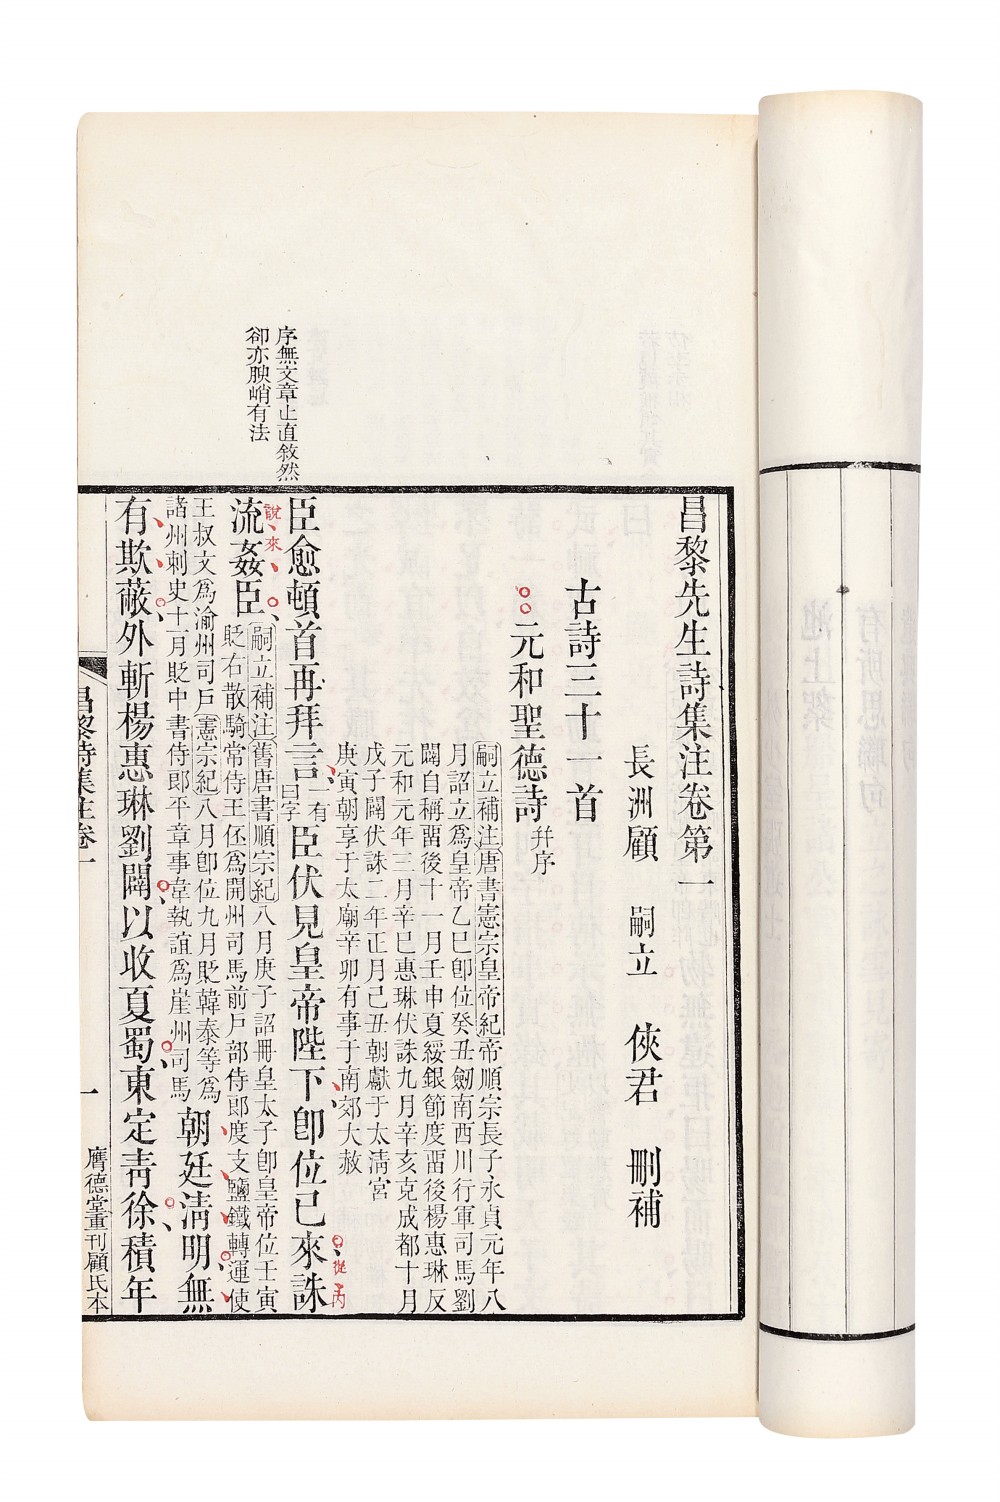 序無文章止直敘然
卻亦腴峭有法
昌黎先生詩集注卷第一
長洲顧 嗣立 俠君 刪補
古詩三十一首
元和聖德詩
幷序
嗣立補注唐書憲宗皇帝紀帝順宗長子永貞元年八
月詔立爲皇帝乙巳卽位癸丑劒南西川行軍司馬劉
闢自稱畱後十一月壬申夏綏銀節度畱後楊惠琳反
元和元年三月辛巳惠琳伏誅九月辛亥克成都十月
戊子闢伏誅二年正月己丑朝獻于太淸宮
庚寅朝享于太廟辛卯有事于南郊大赦
臣愈頓首再拜言
一有
曰字
臣伏見皇帝陛下卽位已來誅
從
內
說
來
流姦臣
嗣立補注舊唐書順宗紀八月庚子詔冊皇太子卽皇帝位壬寅
貶右散騎常侍王伾爲開州司馬前戶部侍郎度支鹽鐵轉運使
王叔文爲渝州司戶憲宗紀八月卽位九月貶韓泰等爲
諸州刺史十一月貶中書侍郎平章事韋執誼爲崖州司馬
朝廷淸明無
有欺蔽外斬楊惠琳劉闢以收夏蜀東定靑徐積年
昌黎詩集注卷一
一
膺德堂重刊顧氏本